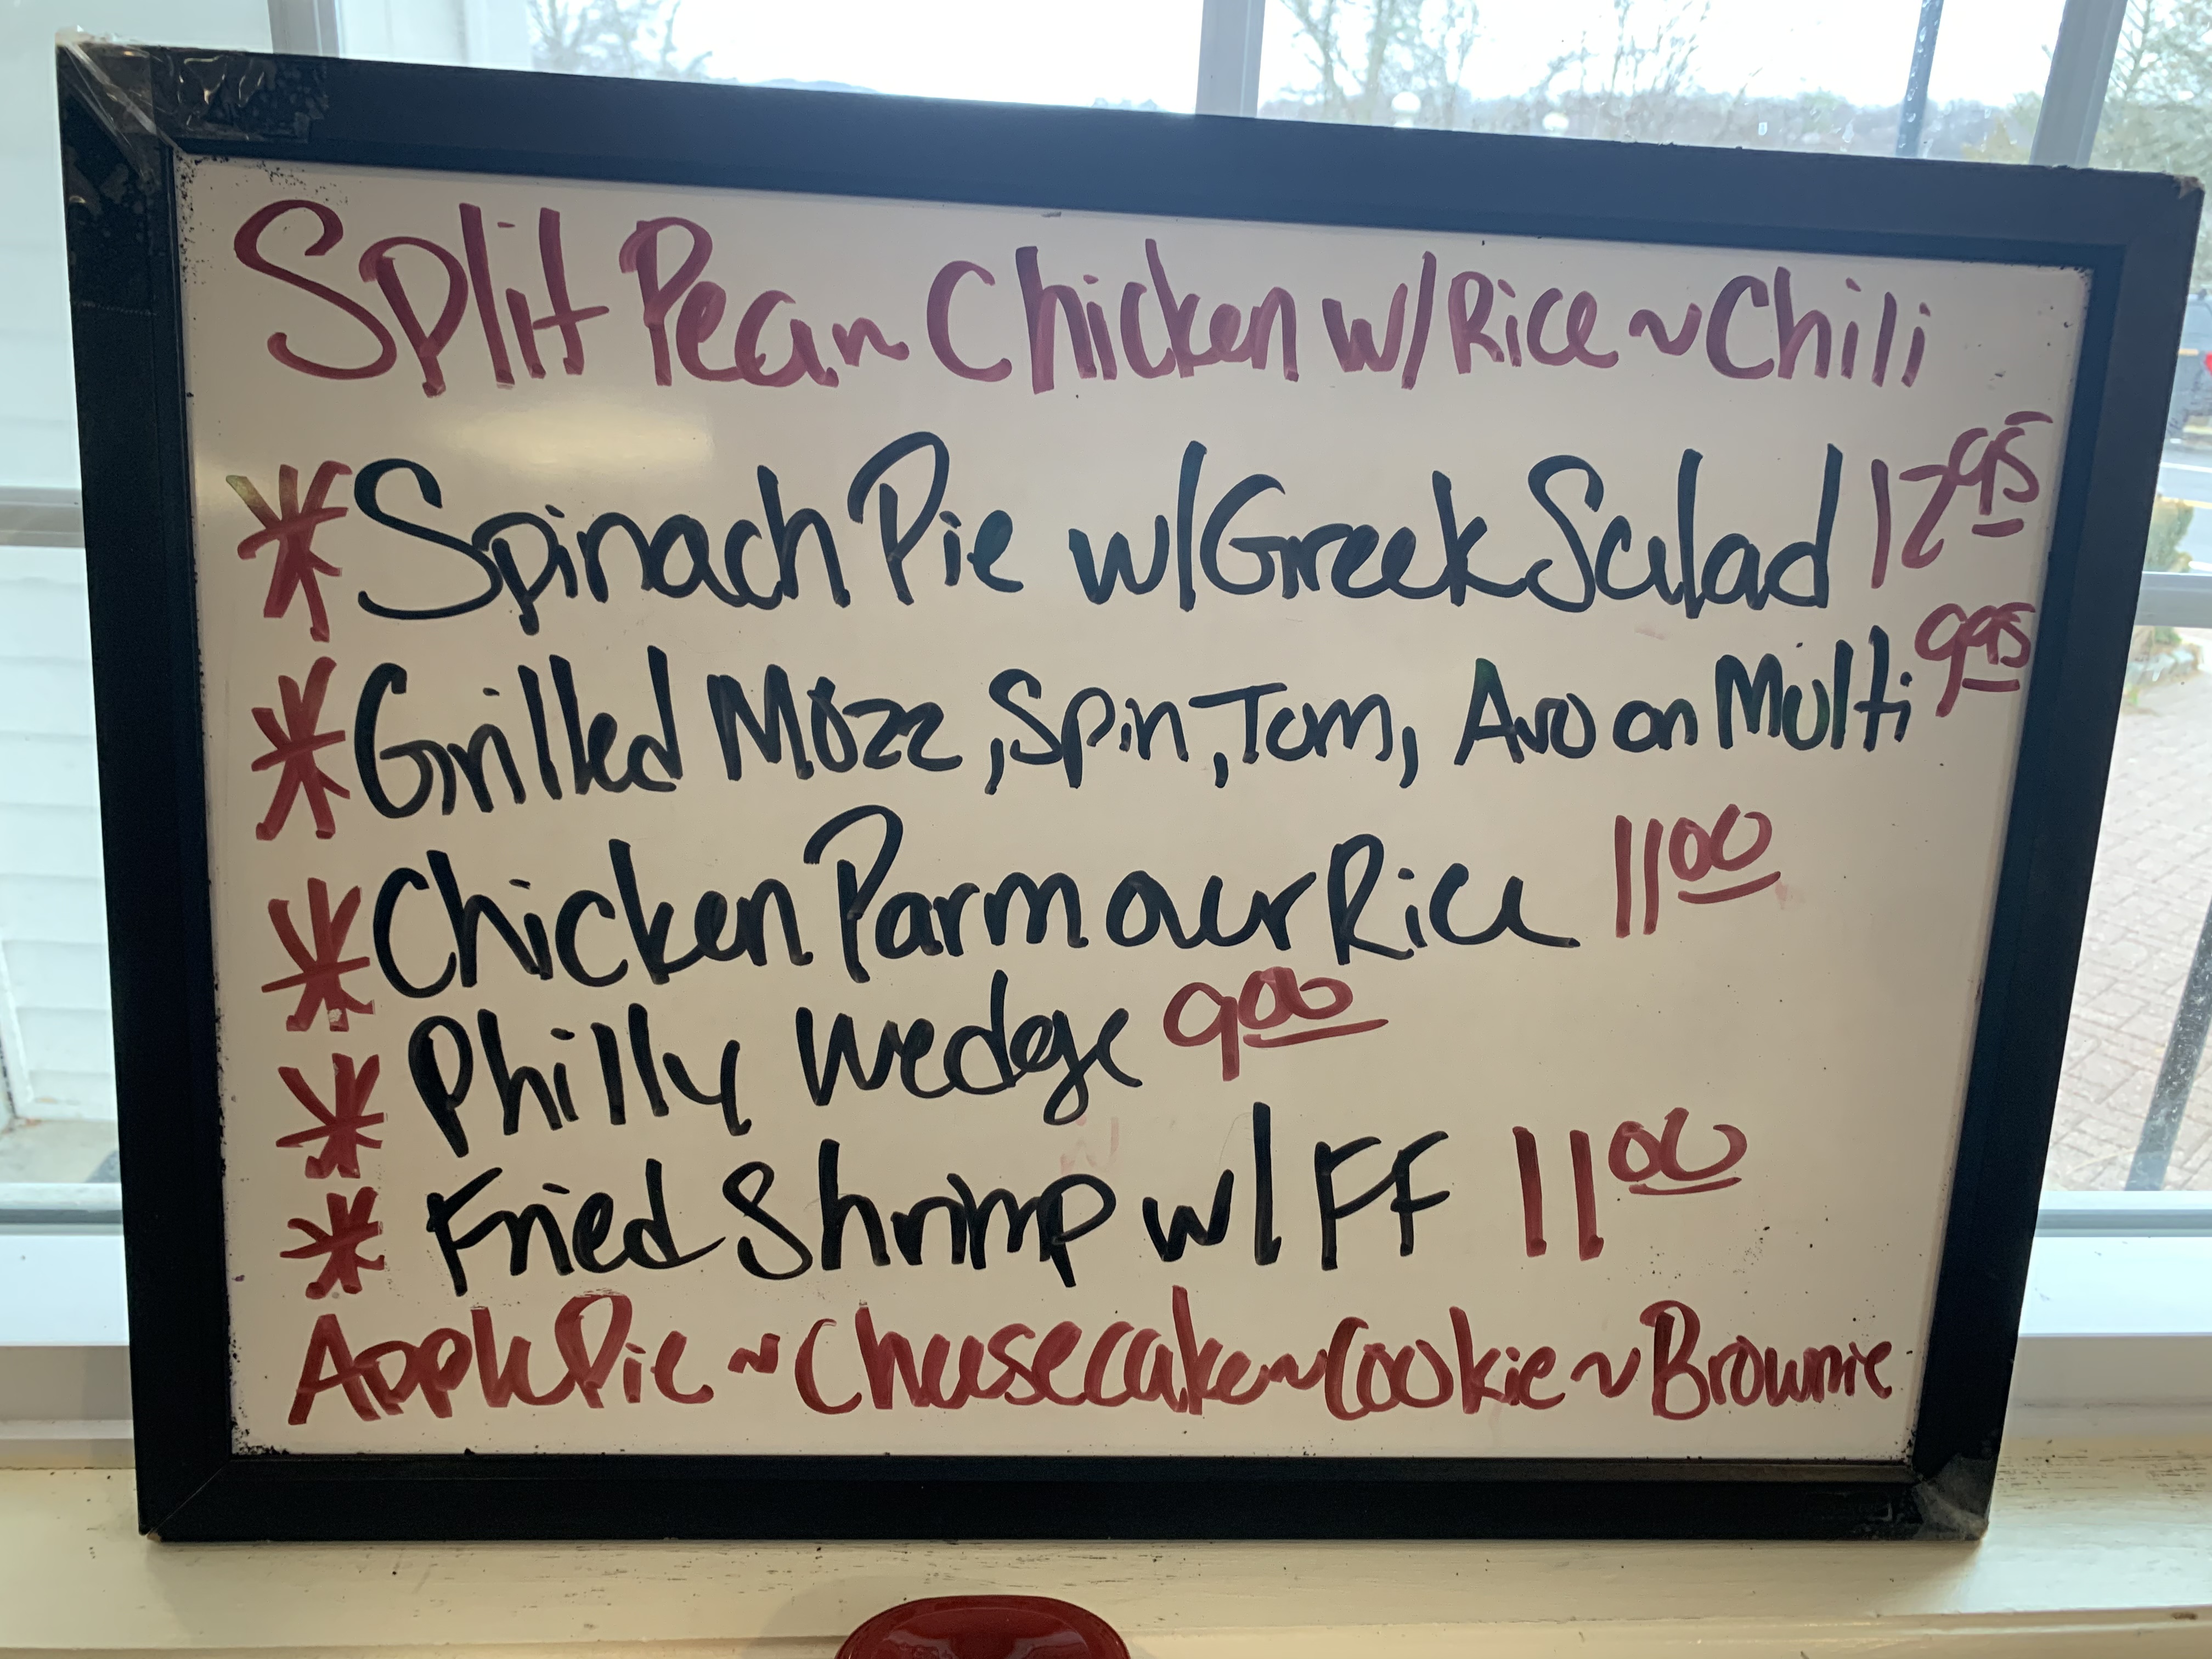 Split Pea ~ Chicken w/ Rice ~ Chili
* Spinach Pie w/ Greek Salad 12.95
* Grilled Mozz, Spin, Tom, Avo on Multi 9.95
* Chicken Parm over Rice 11.00
* Philly Wedge 9.00
* Fried Shrimp w/ FF 11.00
Apple Pie ~ Cheesecake ~ Cookie ~ Brownie